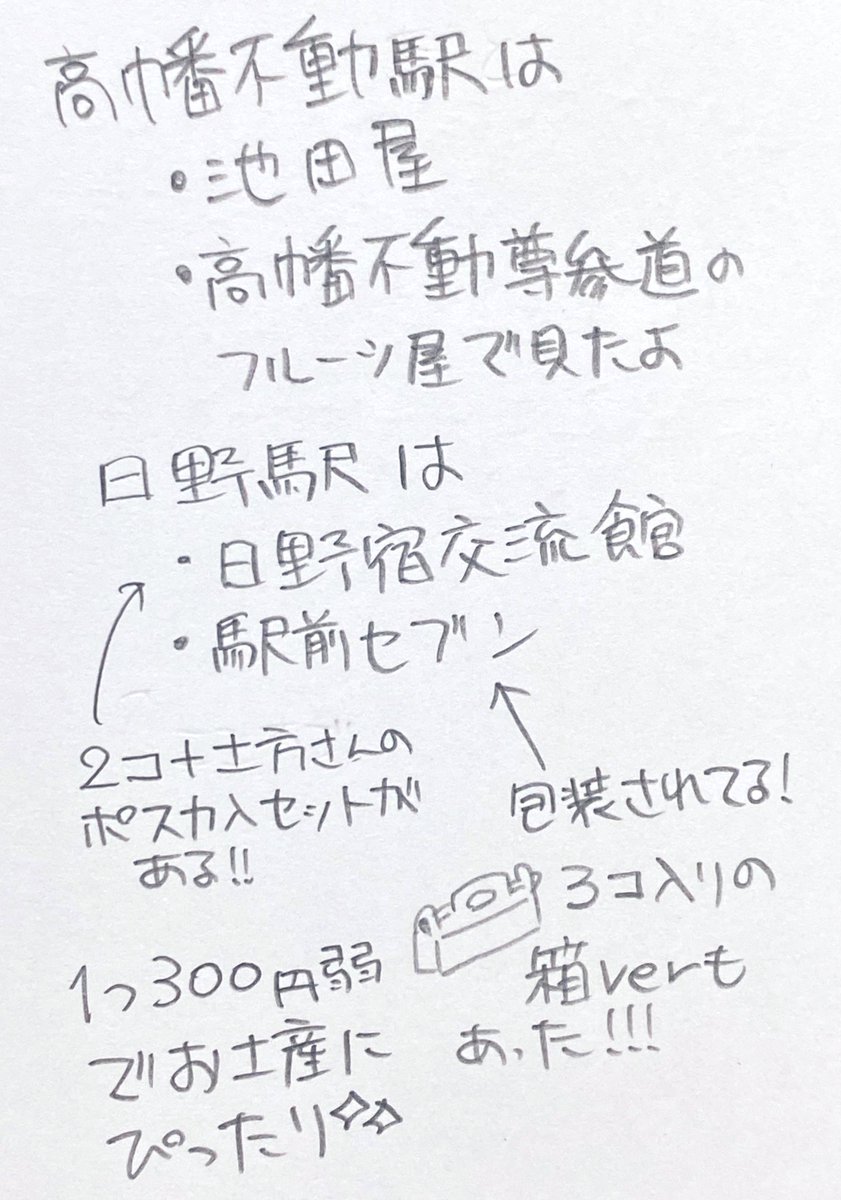 高幡不動駅は
・池田屋
・高幡不動尊参道の
フルーツ屋で見たよ
日野駅は
・日野宿交流館
・駅前セブン
2コ+土方さんの
ポスカ入セットが
ある!!
包装されてる!
3コ入りの
箱verも
あった!!!
1つ300円弱
でお土産に
ぴったり